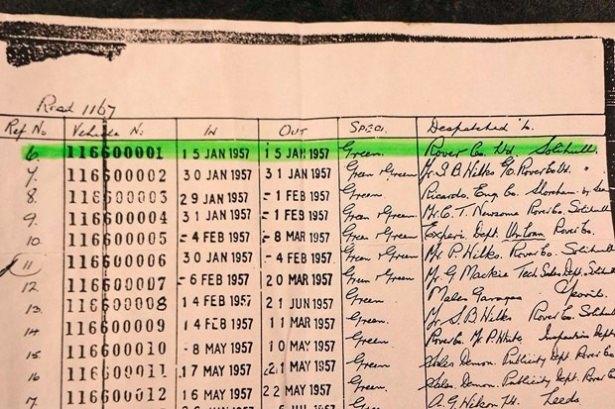 Road 1167
Ref No Vehicle No: IN OUT SPECI. Despatched to.
6. 116600001 15 JAN 1957 15 JAN 1957 Green. Rover Co. Ltd Solihull
7. 116600002 30 JAN 1957 31 JAN 1957 Green & Green Mr S.B. Wilks c/o. Rover Co Ltd.
8. 116600003 29 JAN 1957 -1 FEB 1957 Green. Ricardo. Eng. Co. Shoreham by Sea
9. 116600004 31 JAN 1957 -1 FEB 1957 Green & Green Mr. C.T. Newsome Rover Co. Solihull
10. 116600005 -4 FEB 1957 -8 MAR 1957 Green & Green Dept. Rover Co.
11 116600006 30 JAN 1957 -4 FEB 1957 Green & Green Mr P. Wilks. Rover Co. Solihull
12 116600007 -6 FEB 1957 20 MAR 1957 Green & Green Mr G Mackie Tech Sales Dept. Solihull
13. 116600008 14 FEB 1957 21 JUN 1957 Green. Males Garages Yeovil.
14 116600009 14 FEB 1957 11 MAR 1957 Green. Mr S.B. Wilks Rover Co. Solihull
15 116600010 -8 MAY 1957 10 MAY 1957 Green. Rover Co. Mr P. White. Inspection Dept
16 116600011 17 MAY 1957 21 MAY 1957 Green. Sales Demon. Publicity Dept. Rover Co
17 116600012 16 MAY 1957 22 MAY 1957 Green. Sales Demon. Publicity Dept. Rover Co.
1957 Leeds